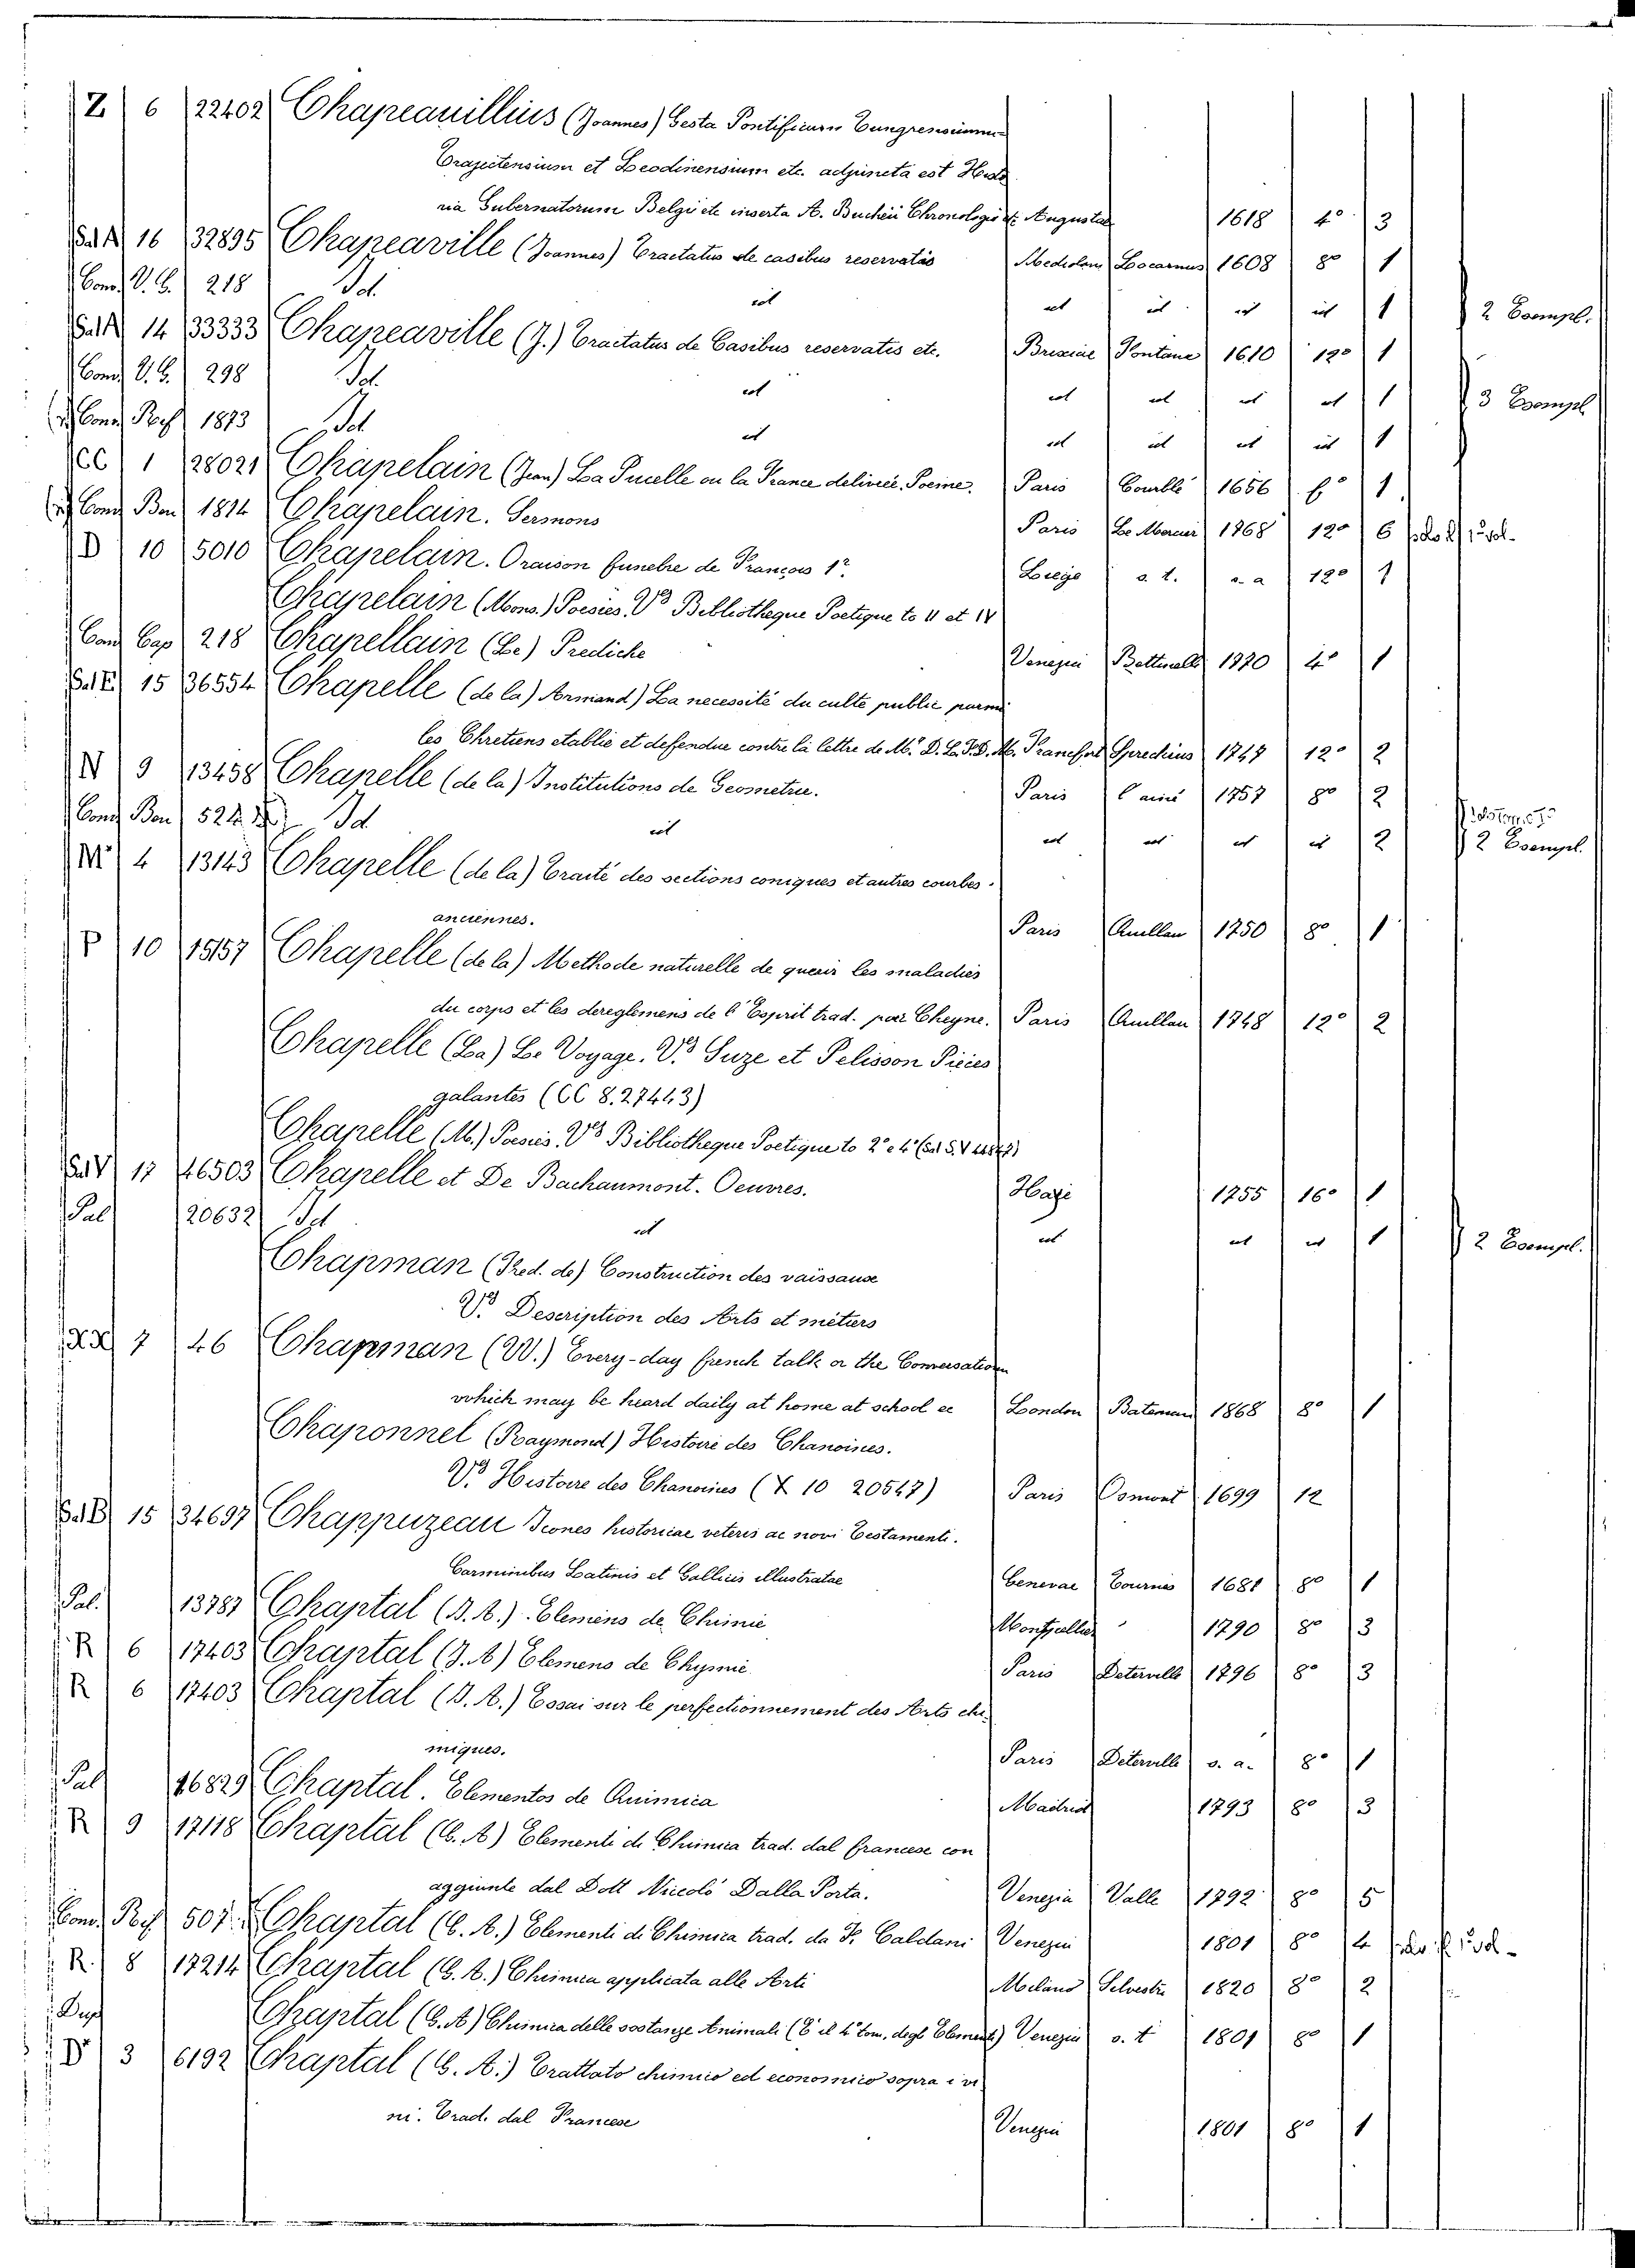 Z 6 22402 Chapeauillius (Joannes) Gesta Pontificum Tungrensium
Trajectensium et Leodinensium etc. adjuncta est Histo
ria Gubernatorum Belgii etc inserta A. Bucherii Chronologia &c Augustae 1618 4° 3
Sal A 16 32895 Chapeaville (Joannes) Tractatus de casibus reservatis Mediolani Locarnus 1608 8° 1
Cons. V. E. 218 Id. id id id id id 1 2 Esempl.
Sal A 14 33333 Chapeaville (J.) Tractatus de Casibus reservatis etc. Brixiae Fontana 1610 12° 1
Cons V. E. 298 Id. id id id id id 1 3 Esempl
Cons Rof 1873 Id id id id id id 1
CC 1 28021 Chapelain (Jean) La Pucelle ou la France delivrée. Poeme. Paris Courbé 1656 f° 1
Cons Ben 1814 Chapelain. Sermons Paris Le Mercier 1768 12° 6
D 10 5010 Chapelain. Oraison funebre de François 1r. Liege s. t. s. a 12° 1
Chapelain (Mons.) Poesies. V° Bibliotheque Poetique to II et IV
Cons Cap 218 Chapellain (Le) Prediche Venezia Bettinelli 1770 4° 1
Sal E 15 36554 Chapelle (de la) Armand) La necessité du culte public parmi
les Chretiens etablie et defendue contre la lettre de Mr D. L. F. E. D. M. Francfort Sprechius 1747 12° 2
N 9 13458 Chapelle (de la) Institutions de Geometrie. Paris l'ainé 1757 8° 2
Cons Ben 524 Id id id id id id 2 2 Esempl.
M 4 13143 Chapelle (de la) Traité des sections coniques et autres courbes
anciennes. Paris Quillau 1750 8° 1
P 10 15157 Chapelle (de la) Methode naturelle de querir les maladies
du corps et les dereglemens de l'Esprit trad. par Cheyne. Paris Quillau 1748 12° 2
Chapelle (La) Le Voyage. V° Suze et Pelisson Pieces
galantes (CC 8. 27443)
Chapelle (M.) Poesies. V° Bibliotheque Poetique to 2° e 4°
Sal V 17 46503 Chapelle et De Bachaumont. Oeuvres. Haye 1755 16° 1
Pal 20632 Id id id id id 1 2 Esempl.
Chapman (Fred. de) Construction des vaissaux
V° Description des Arts et metiers
7 46 Chapman (W.) Every-day french talk or the Conversation
vohich may be heard daily at home at school ec London Bateman 1868 8° 1
Chaponnel (Raymond) Histoire des Chanoines.
V° Histoire des Chanoines (X 10 20547) Paris Osmont 1699 12
Sal B 15 34697 Chappuzeau Icones historicae veteris ac novi Testamenti.
Carminibus Latinis et Gallicis illustratae Genevae Tournes 1681 8° 1
Pal. 13787 Chaptal (J. A.) Elemens de Chimie Montpellier 1790 8° 3
R 6 17403 Chaptal (J. A) Elemens de Chymie Paris Deterville 1796 8° 3
R 6 17403 Chaptal (J. A.) Essai sur le perfectionnement des Arts chi
miques. Paris Deterville s. a. 8° 1
Pal 16829 Chaptal. Elementos de Quimica Madrid 1793 8° 3
R 9 17118 Chaptal (C. A) Elementi di Chimica trad. dal francese con
aggiunte dal Dott Niccolò Dalla Porta. Venezia Valle 1792 8° 5
Cons. Rof 507 Chaptal (C. A.) Elementi di Chimica trad. da F. Caldani Venezia 1801 8° 4
R. 8 17214 Chaptal (C. A.) Chimica applicata alle Arti Milano Silvestri 1820 8° 2
Dup Chaptal (C. A) Chimica delle sostanze Animali (È il 4° tom. degli Elementi) Venezia s. t 1801 8° 1
D 3 6192 Chaptal (C. A.) Trattato chimico ed economico sopra i vi
ni. Trad. dal Francese Venezia 1801 8° 1